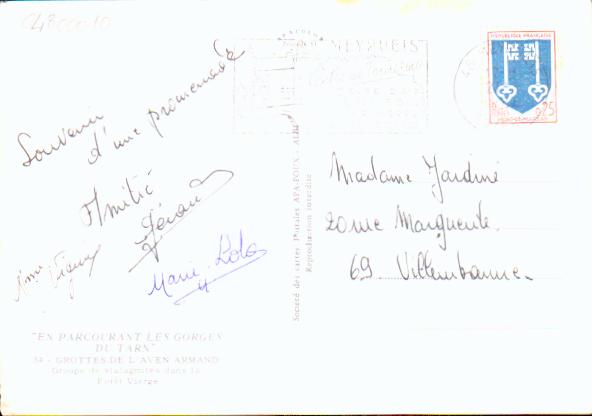 CL8 00010
Souvenir
d'une promenade
Amitié
Gérard
Mme
Marie
"EN PARCOURANT LES GORGES
DU TARN"
34 - GROTTES DE L'AVEN ARMAND
Groupe de stalagmites dans la
Forêt Vierge
Société des cartes Postales APA-POUX - ALBI
Reproduction interdite
APA-POUX
MEYRUEIS
REPUBLIQUE FRANCAISE
0,25
POSTES
MONT-DE-MARSAN
Madame Jardiné
20 rue Marguerite
69 Villeurbanne